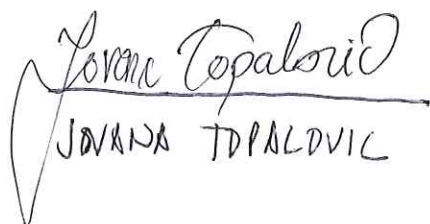 Jovana Topalović
JOVANA TOPALOVIC